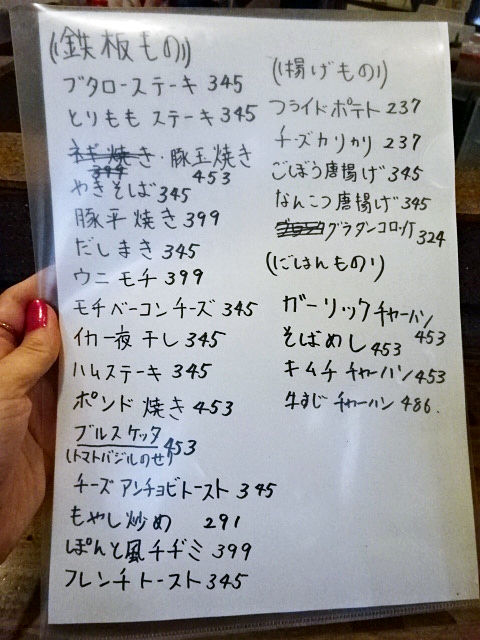 (鉄板もの)
ブタロースステーキ 345
とりもも ステーキ 345
ネギ焼き・豚玉焼き
344 453
やきそば 345
豚平焼き 399
だしまき 345
ウニ モチ 399
モチベーコンチーズ 345
イカ一夜干し 345
ハムステーキ 345
ポンド焼き 453
ブルスケッタ 453
(トマトバジルのせ)
チーズアンチョビトースト 345
もやし炒め 291
ぽんと風チヂミ 399
フレンチトースト 345
(揚げもの)
フライドポテト 237
チーズカリカリ 237
ごぼう唐揚げ 345
なんこつ唐揚げ 345
グラタンコロッケ 324
(ごはんもの)
ガーリックチャーハン
453
そばめし 453
キムチチャーハン 453
牛すじチャーハン 486.